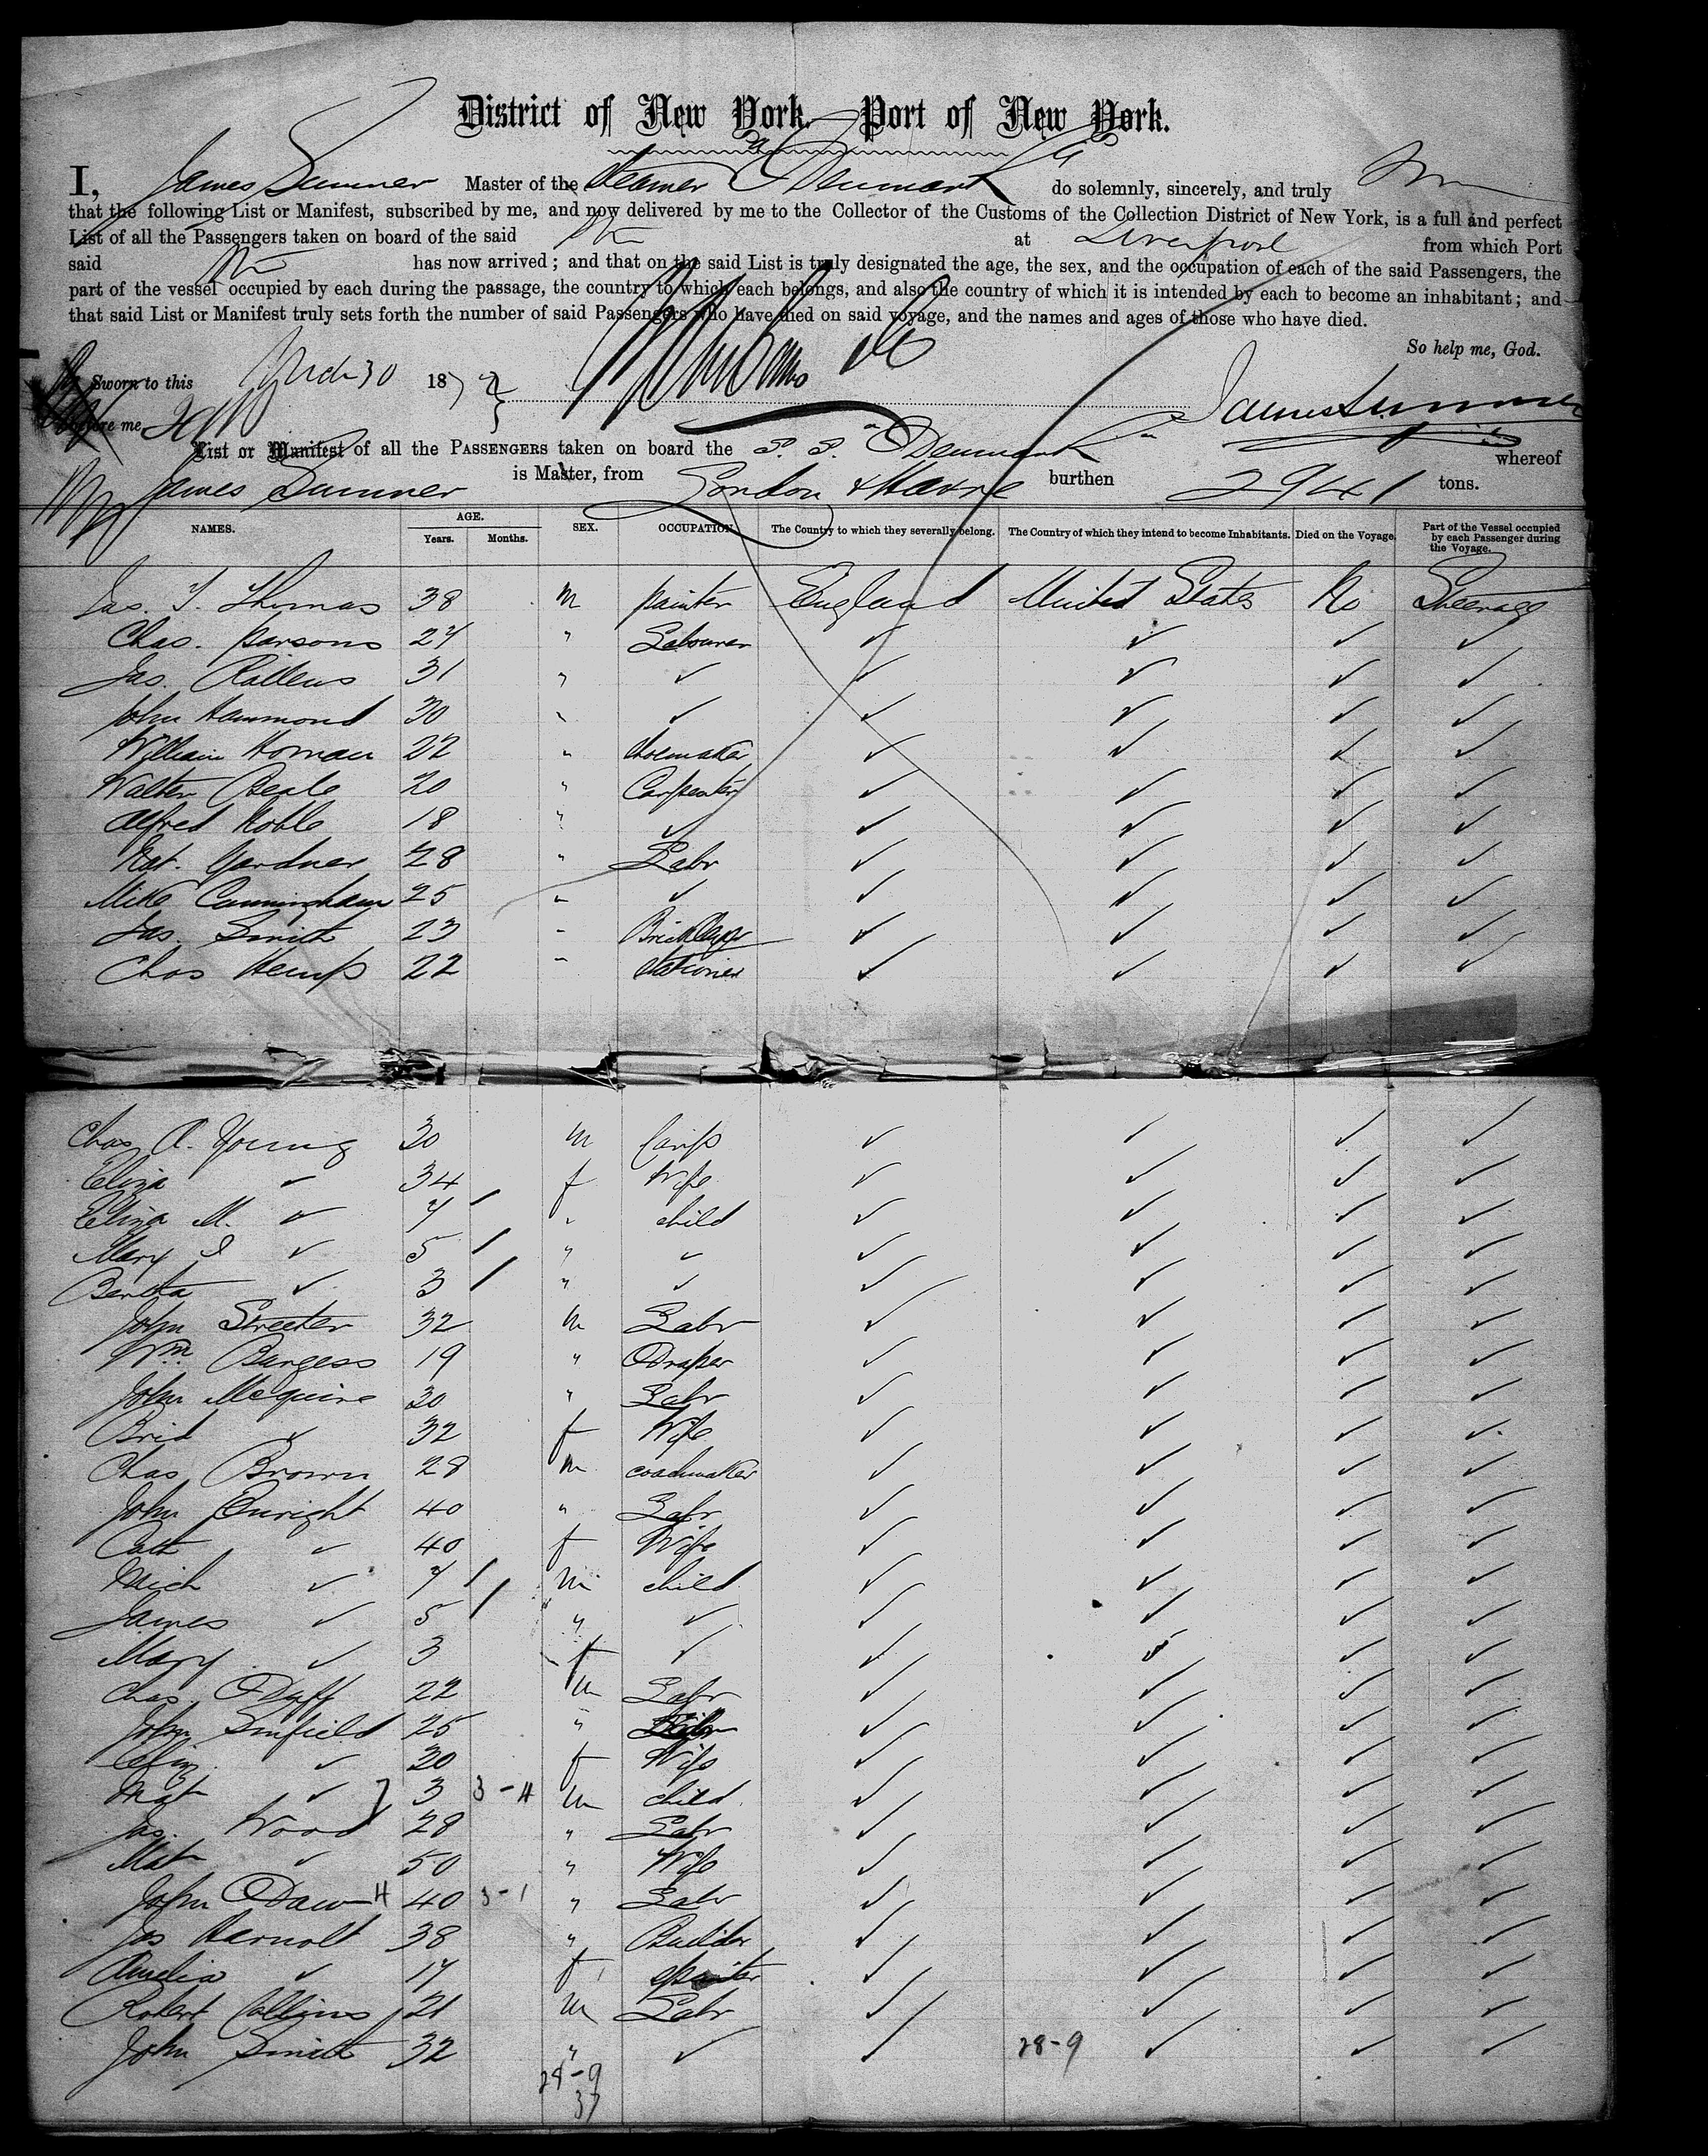 District of New York. Port of New York.
I, James Sumner Master of the Steamer Denmark do solemnly, sincerely, and truly
that the following List or Manifest, subscribed by me, and now delivered by me to the Collector of the Customs of the Collection District of New York, is a full and perfect
List of all the Passengers taken on board of the said at Liverpool from which Port
said has now arrived; and that on the said List is truly designated the age, the sex, and the occupation of each of the said Passengers, the
part of the vessel occupied by each during the passage, the country to which each belongs, and also the country of which it is intended by each to become an inhabitant; and
that said List or Manifest truly sets forth the number of said Passengers who have died on said voyage, and the names and ages of those who have died.
So help me, God.
Sworn to this March 30 1877
James Sumner
before me
List or Manifest of all the PASSENGERS taken on board the S. S. "Denmark" whereof
James Sumner is Master, from London & Havre burthen 2941 tons.
NAMES. AGE. Years. Months. SEX. OCCUPATION. The Country to which they severally belong. The Country of which they intend to become Inhabitants. Died on the Voyage. Part of the Vessel occupied by each Passenger during the Voyage.
Jas. T. Thomas 38 m painter England United States No Steerage
Chas. Parsons 24 " Labourer ✓ ✓ ✓ ✓
Jas. Rollens 31 " ✓ ✓ ✓ ✓ ✓
John Hammond 30 " ✓ ✓ ✓ ✓ ✓
William Homan 22 " Shoemaker ✓ ✓ ✓ ✓
Walter Beale 20 " Carpenter ✓ ✓ ✓ ✓
Alfred Noble 18 " ✓ ✓ ✓ ✓ ✓
Nat. Gardner 28 " Labr ✓ ✓ ✓ ✓
Mike Cunningham 25 " ✓ ✓ ✓ ✓ ✓
Jas. Smith 23 " Bricklayer ✓ ✓ ✓ ✓
Chas Kemp 22 " Stationer ✓ ✓ ✓ ✓
Chas A. Young 30 m Carp ✓ ✓ ✓ ✓
Eliza ✓ 34 f Wife ✓ ✓ ✓ ✓
Eliza M. ✓ 7 / " child ✓ ✓ ✓ ✓
Mary J ✓ 5 / " ✓ ✓ ✓ ✓ ✓
Bertha ✓ 3 / " ✓ ✓ ✓ ✓ ✓
John Streeter 32 m Labr ✓ ✓ ✓ ✓
Wm. Burgess 19 " Draper ✓ ✓ ✓ ✓
John Mcguire 30 " Labr ✓ ✓ ✓ ✓
Brid ✓ 32 f Wife ✓ ✓ ✓ ✓
Chas Brown 28 m coachmaker ✓ ✓ ✓ ✓
John Enright 40 " Labr ✓ ✓ ✓ ✓
Cath ✓ 40 f Wife ✓ ✓ ✓ ✓
Mich ✓ 7 / m child ✓ ✓ ✓ ✓
James ✓ 5 / " ✓ ✓ ✓ ✓ ✓
Mary ✓ 3 f ✓ ✓ ✓ ✓ ✓
Chas. Duff 22 m Labr ✓ ✓ ✓ ✓
John Sinfield 25 " ✓ ✓ ✓ ✓
Eliz. ✓ 20 f Wife ✓ ✓ ✓ ✓
Mat ✓ 3 3-4 m child ✓ ✓ ✓ ✓
Jas. Wood 28 " Labr ✓ ✓ ✓ ✓
Mat ✓ 50 " Wife ✓ ✓ ✓ ✓
John Daw 4 40 3-1 " Labr ✓ ✓ ✓ ✓
Jas Harnolt 38 " Builder ✓ ✓ ✓ ✓
Amelia ✓ 17 f ✓ ✓ ✓ ✓
Robert Collins 21 m Labr ✓ ✓ ✓ ✓
John Smith 32 " ✓ ✓ 28-9 ✓ ✓ ✓
28-9
37